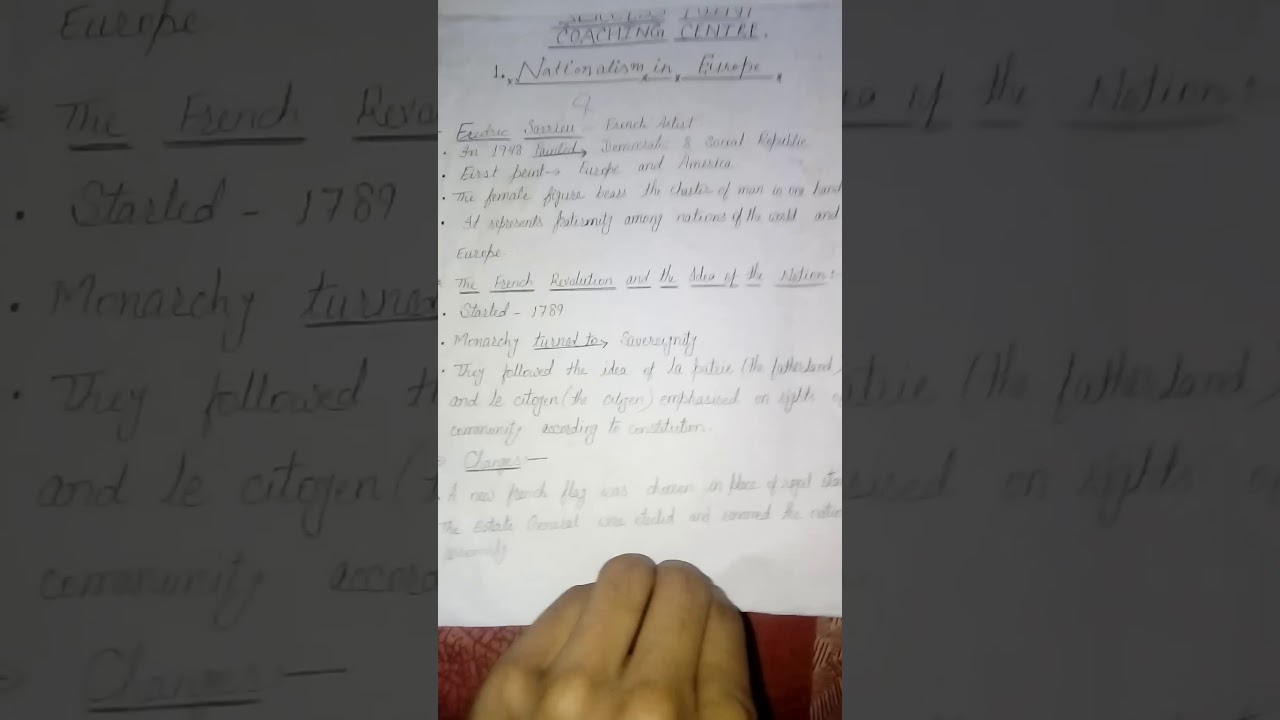 COACHING CENTRE.
1. Nationalism in Europe
Fredric Sorrieu - French Artist
. In 1948 Painted → Democratic & Social Republic
. First print → Europe and America
. The female figure bears the charter of man in one hand
. It represents fraternity among nations of the world and
Europe.
The French Revolution and the Idea of the Nation:-
. Started - 1789
. Monarchy turned to → Sovereignity
. They followed the idea of la patrie (the fatherland)
and le citogen (the citizen) emphasised on rights of
community according to constitution.
Changes:-
. A new french flag was choosen in place of royal
The Estate General was elected and renamed the